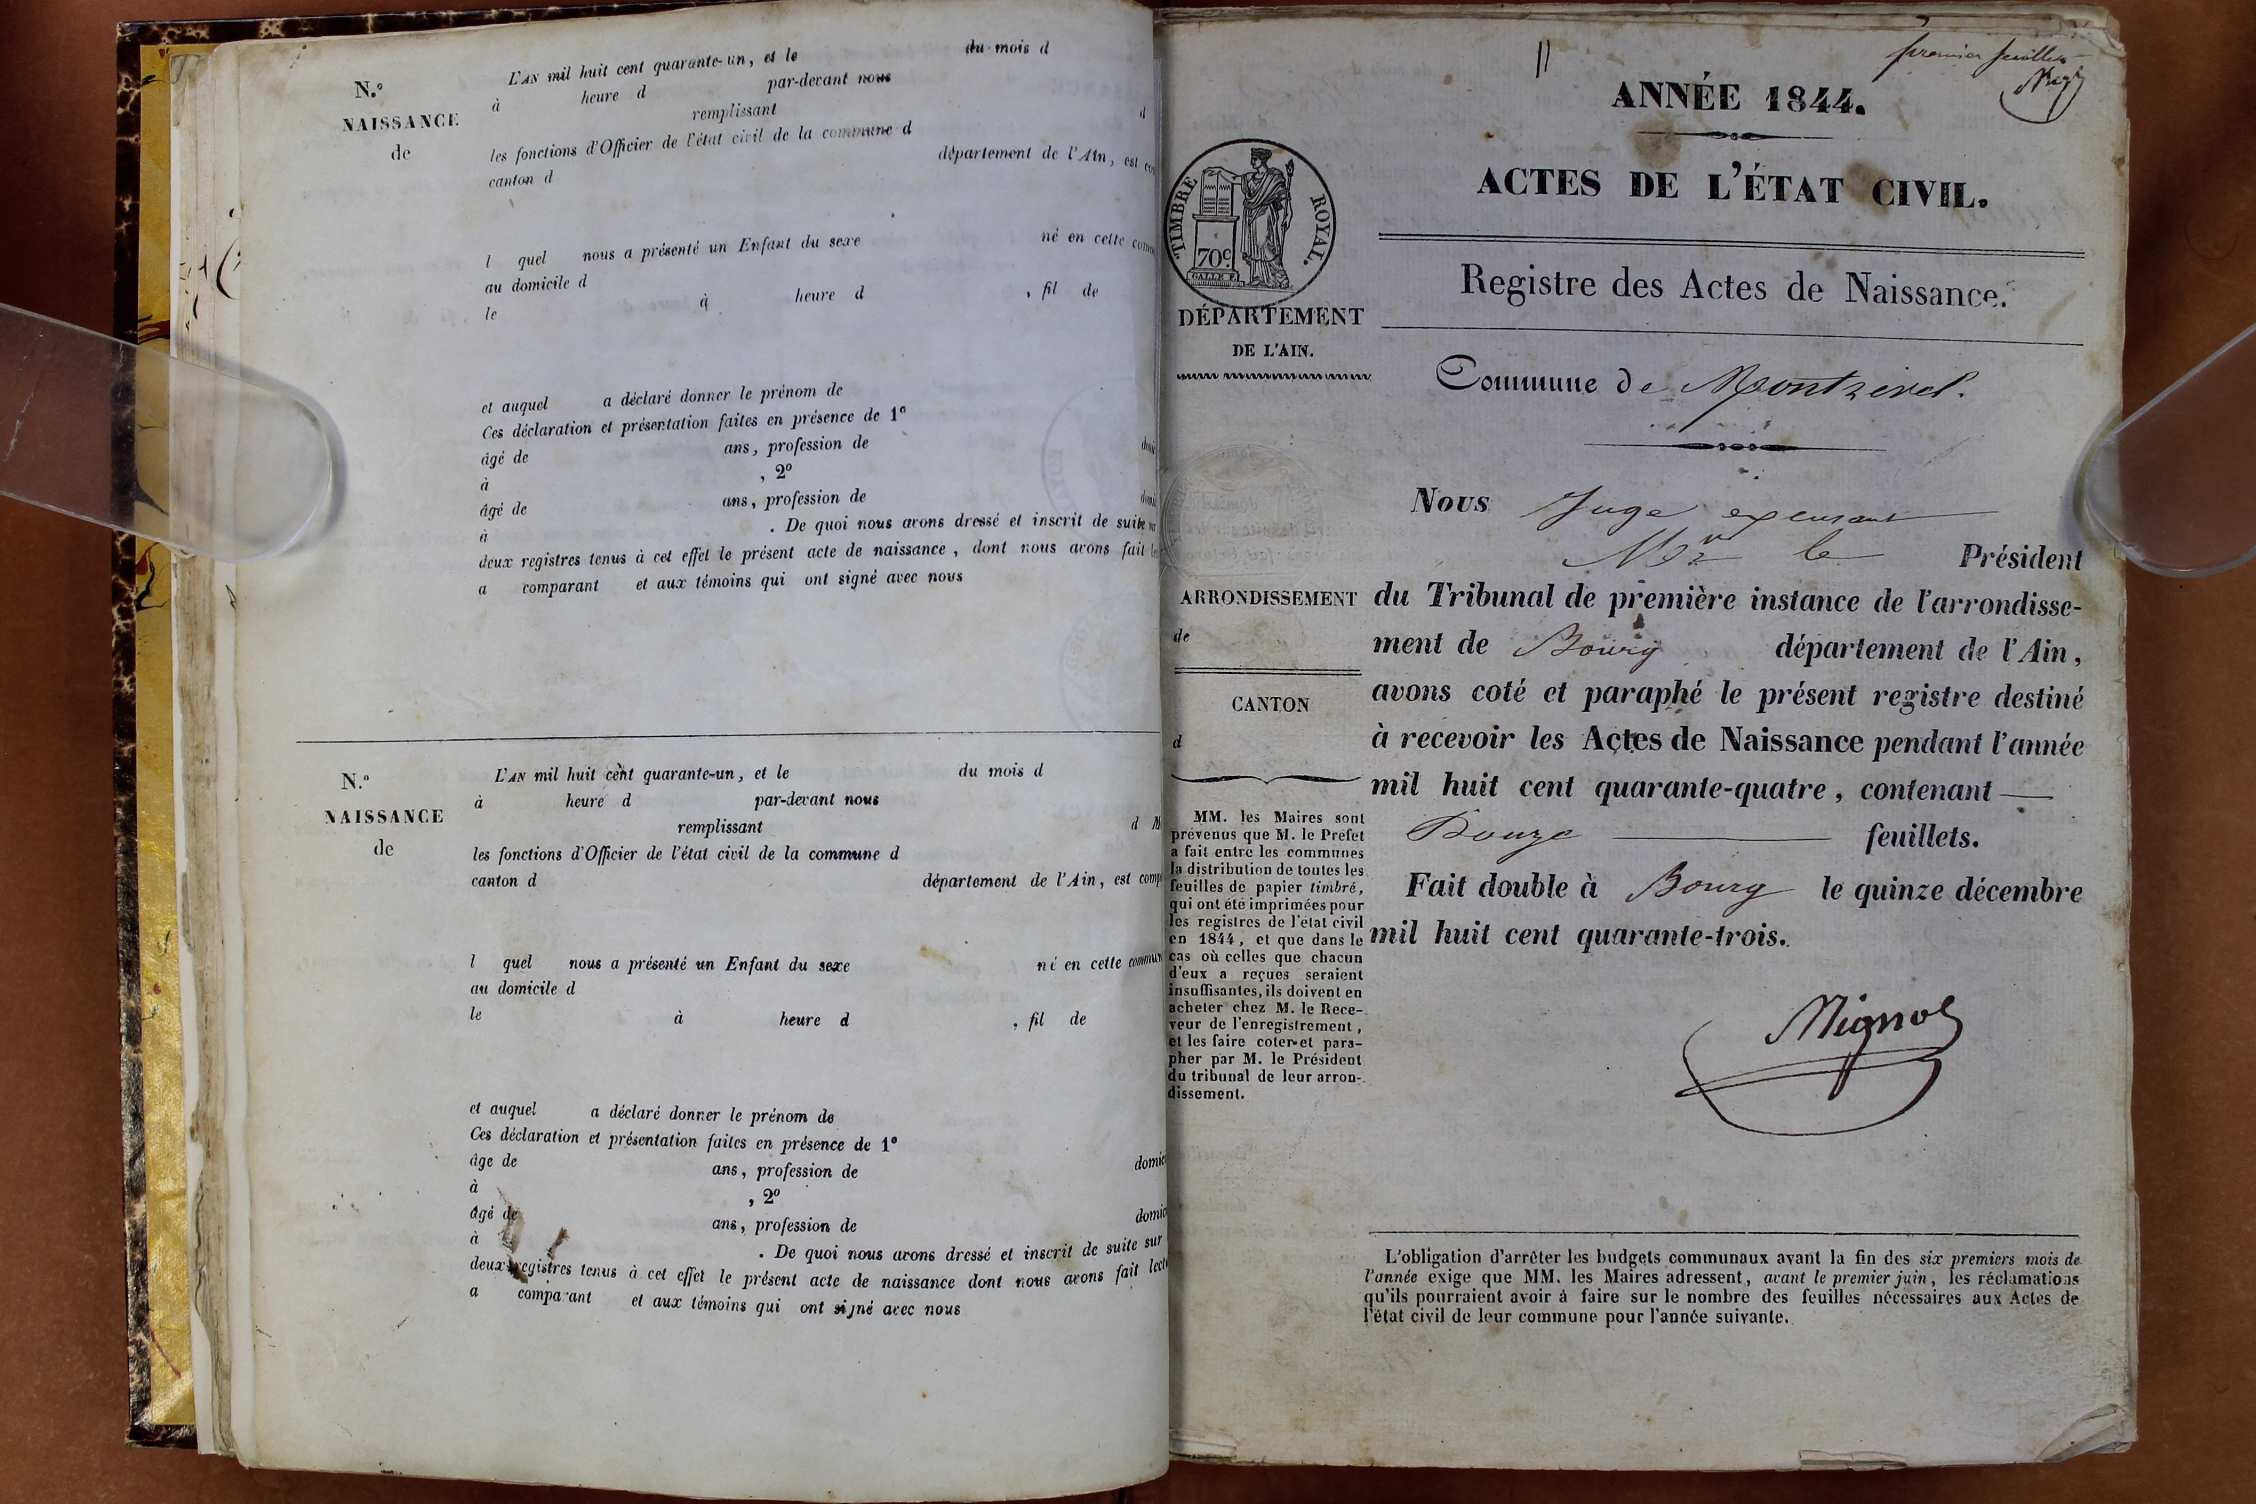 N.º
NAISSANCE
de
L'AN mil huit cent quarante-un, et le du mois d
à heure d par-devant nous
remplissant d
les fonctions d'Officier de l'état civil de la commune d
canton d département de l'Ain, est
l quel nous a présenté un Enfant du sexe né en cette
au domicile d
le à heure d , fil de
et auquel a déclaré donner le prénom de
Ces déclaration et présentation faites en présence de 1º
âgé de ans, profession de
à , 2º
âgé de ans, profession de
à . De quoi nous avons dressé et inscrit de suite
deux registres tenus à cet effet le présent acte de naissance, dont nous avons fait
a comparant et aux témoins qui ont signé avec nous
N.º
NAISSANCE
de
L'AN mil huit cent quarante-un, et le du mois d
à heure d par-devant nous
remplissant d
les fonctions d'Officier de l'état civil de la commune d
canton d département de l'Ain, est
l quel nous a présenté un Enfant du sexe né en cette
au domicile d
le à heure d , fil de
et auquel a déclaré donner le prénom de
Ces déclaration et présentation faites en présence de 1º
âge de ans, profession de
à , 2º
âgé de ans, profession de
à . De quoi nous avons dressé et inscrit de suite sur
deux registres tenus à cet effet le présent acte de naissance dont nous avons fait
a comparant et aux témoins qui ont signé avec nous
premier feuillet
ANNÉE 1844.
ACTES DE L'ÉTAT CIVIL.
TIMBRE ROYAL.
70 c.
Registre des Actes de Naissance.
DÉPARTEMENT
DE L'AIN.
Commune de Montrevel.
Nous Juge
le Président
ARRONDISSEMENT
de
CANTON
d
du Tribunal de première instance de l'arrondisse-
ment de Bourg département de l'Ain,
avons coté et paraphé le présent registre destiné
à recevoir les Actes de Naissance pendant l'année
mil huit cent quarante-quatre, contenant
Douze feuillets.
Fait double à Bourg le quinze décembre
mil huit cent quarante-trois.
Mignot
MM. les Maires sont
prévenus que M. le Préfet
a fait entre les communes
la distribution de toutes les
feuilles de papier timbré,
qui ont été imprimées pour
les registres de l'état civil
en 1844, et que dans le
cas où celles que chacun
d'eux a reçues seraient
insuffisantes, ils doivent en
acheter chez M. le Rece-
veur de l'enregistrement,
et les faire coter et para-
pher par M. le Président
du tribunal de leur arron-
dissement.
L'obligation d'arrêter les budgets communaux avant la fin des six premiers mois de
l'année exige que MM. les Maires adressent, avant le premier juin, les réclamations
qu'ils pourraient avoir à faire sur le nombre des feuilles nécessaires aux Actes de
l'état civil de leur commune pour l'année suivante.